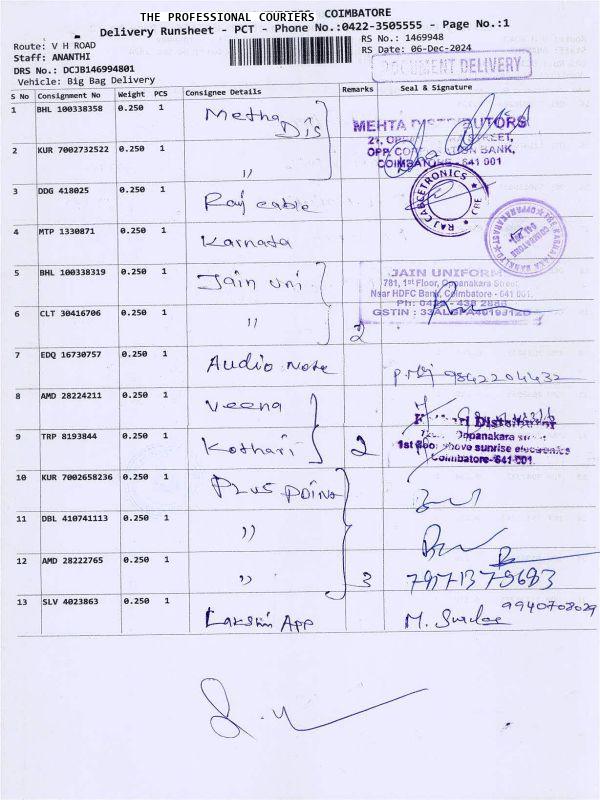 THE PROFESSIONAL COURIERS COIMBATORE
Delivery Runsheet - PCT - Phone No.:0422-3505555 - Page No.:1
Route: V H ROAD
RS No.: 1469948
Staff: ANANTHI
RS Date: 06-Dec-2024
DRS No.: DCJB146994801
DOCUMENT DELIVERY
Vehicle: Big Bag Delivery
S No Consignment No Weight PCS Consignee Details Remarks Seal & Signature
1 BHL 100338358 0.250 1 Metha Dis
MEHTA DISTRIBUTORS
STREET,
BANK,
COIMBATORE - 641 001
2 KUR 7002732522 0.250 1 "
3 DDG 418025 0.250 1 Raj cable
RAJ CABLETRONICS CBE
4 MTP 1330871 0.250 1 Karnata
5 BHL 100338319 0.250 1 Jain uni
JAIN UNIFORM
781, 1st Floor, Oppanakara Street,
Near HDFC Bank, Coimbatore - 641 001.
6 CLT 30416706 0.250 1 " 2
7 EDQ 16730757 0.250 1 Audio Note 9842204432
8 AMD 28224211 0.250 1 Veena
9 TRP 8193844 0.250 1 Kothari 2
Oppanakara
1st Floor, above sunrise electronics
Coimbatore-641 001.
10 KUR 7002658236 0.250 1 Plus Point
11 DBL 410741113 0.250 1 "
12 AMD 28222765 0.250 1 " 3
13 SLV 4023863 0.250 1 Lakshmi App 9940708029